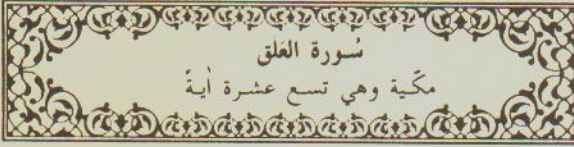 سُورة العَلق
مكّية وهي تسع عشرة اٰيةً